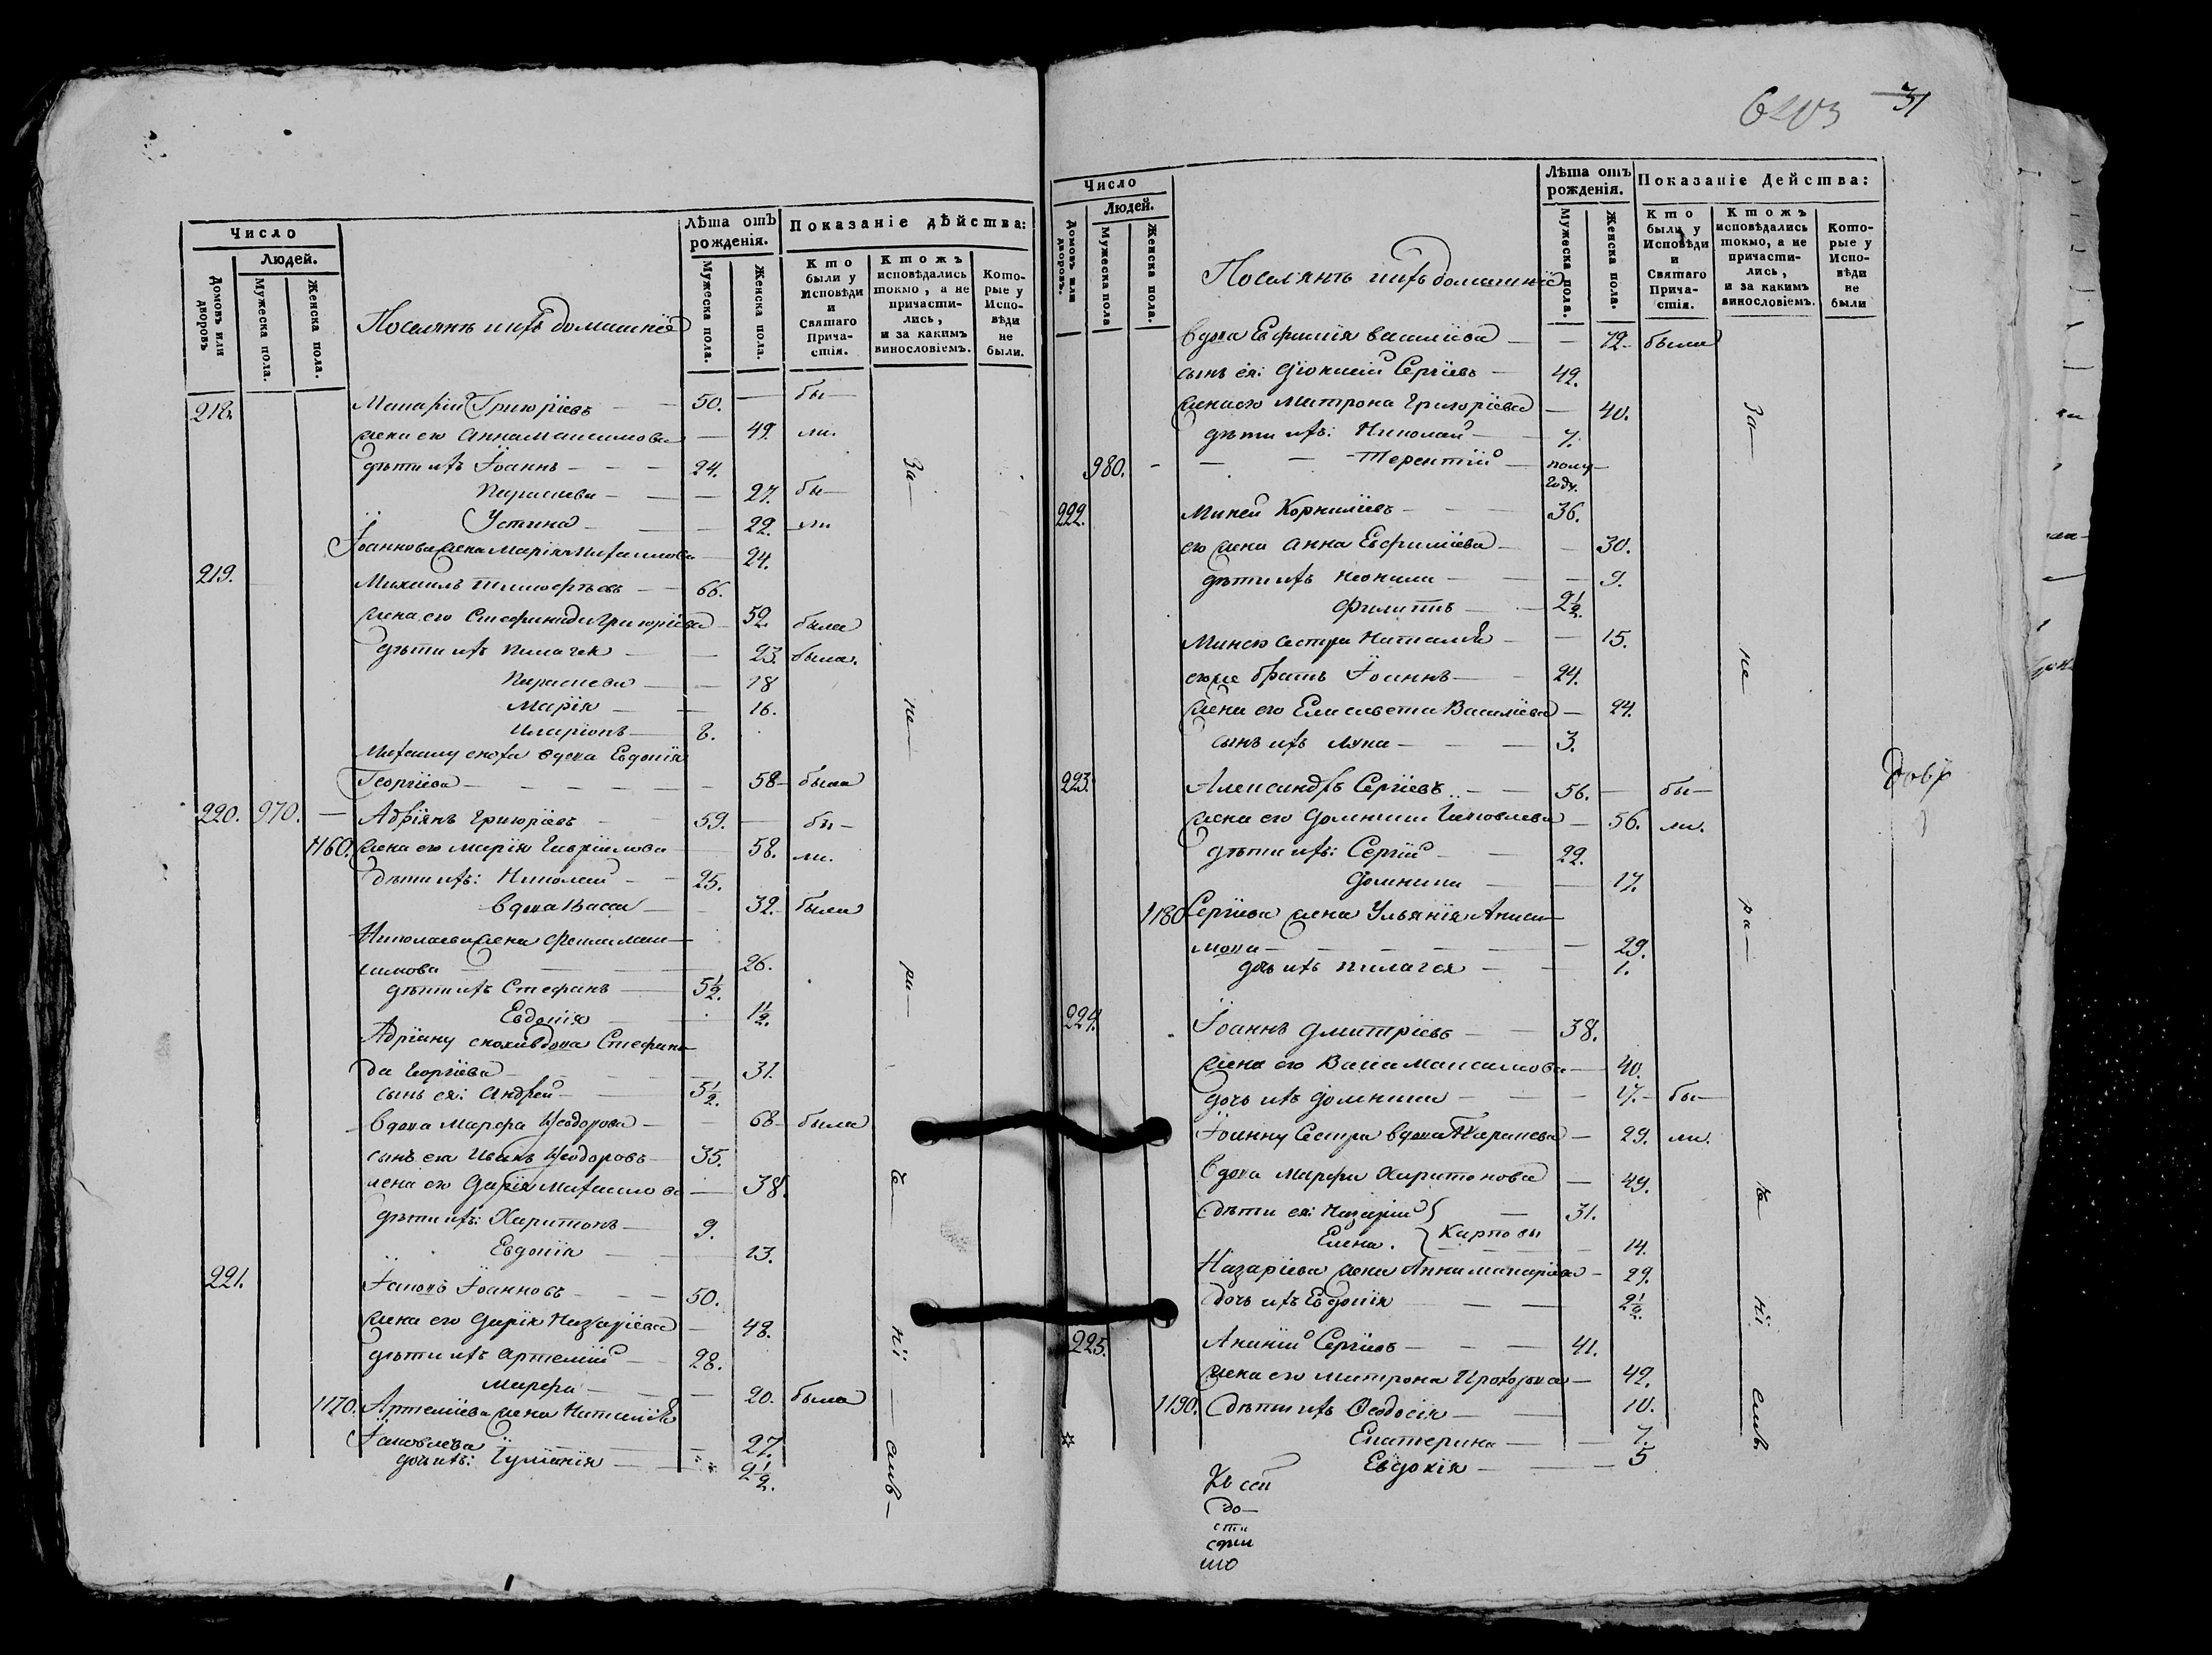 Число
Людей.
Домовъ или дворовъ
Мужеска пола.
Женска пола.
Поселянъ ихъ домашніе
Лѣта отъ рожденія.
Мужеска пола.
Женска пола.
Показаніе дѣйства:
Кто были у Исповѣди и Святаго Причастія.
Ктожъ исповѣдались токмо, а не причастились, и за какимъ винословіемъ.
Которые у Исповѣди не были.
218. Макарій Григоріевъ — 50. — бы—
жена его Анна Максимова — 49. ли.
дѣти ихъ Іоаннъ — — — 24.
Параскева — — — 27. бы—
Устина — — 22. ли
Іоаннова жена Марія Михаилова — 24.
219. Михаилъ Тимофѣевъ — 66.
жена его Стефанида Григоріева — 52. была
дѣти ихъ Пелагея — — 23. была.
Параскева — — 18
Марія — — 16.
Иларіонъ — 8.
Михаилу сноха вдова Евдокія
Георгіева — — — 58 — была
220. 970. — Адріянъ Григоріевъ — 59. — бы—
1160. жена его Марія Гавріилова — 58. ли.
дѣти ихъ: Николай — 25.
вдова Васса — 32. — была
Николаева жена Фекла Мак—
симова — — — 26.
дѣти ихъ Стефанъ — 5 1/2.
Евдокія — 1 1/2.
Адріану сноха вдова Стефани
да Георгіева — — 31.
сынъ ея: Андрей — 5 1/2.
вдова Марфа Ѳеодорова — — 68 — была
сынъ ея Иванъ Ѳеодоровъ — 35.
жена его Дарія Михаилова — 38.
дѣти ихъ: Харитонъ — 9.
Евдокія — 13.
221. Іаковъ Іоанновъ — — — 50.
жена его Дарія Назаріева — 48.
дѣти ихъ Артемій — 28.
Марфа — — 20. была
1170. Артеміева жена Наталія
Іаковлева — — — 27.
дочь ихъ: Іуліанія — — 2 1/2.
За—
не—
ра—
че—
ні—
емъ—
6203
31
Число
Людей.
Домовъ или дворовъ.
Мужеска пола
Женска пола.
Поселянъ ихъ домашніе
Лѣта отъ рожденія.
Мужеска пола.
Женска пола.
Показаніе Действа:
Кто были у Исповѣди и Святаго Причастія.
Ктожъ исповѣдались токмо, а не причастились, и за какимъ винословіемъ.
Которые у Исповѣди не были
вдова Евфимія Василіева — — 72 — была
сынъ ея: Діонисій Сергіевъ — 42.
жена его Матрона Григоріева — 40.
дѣти ихъ: Николай — 7.
980. — — Терентій — полу—
году.
222. Миней Корниліевъ — 36.
его жена Анна Евфиміева — — 30.
дѣти ихъ Неонила — — 9.
Филиппъ — 2 1/2.
Минею сестра Наталія — — 15.
ему же братъ Іоаннъ — 24.
жена его Елисавета Василіева — 24.
сынъ ихъ Лука — — 3.
223. Александръ Сергіевъ — 56. — бы—
жена его Домникія Іаковлева — 56. ли.
дѣти ихъ: Сергій — 22.
Домникия — — 17.
1180 Сергіева жена Ульянія Аниси—
мова — — — 29.
дочь ихъ Пелагея — — 1.
224. Іоаннъ Дмитріевъ — 38.
жена его Васса Максимова — 40.
дочь ихъ Домникия — — 17. — бы—
Іоанну сестра вдова Параскева — 29. ли.
вдова Марфа Харитонова — 49.
дѣти ея: Назарій } — 31.
Елена. } Карповы — 14.
Назаріева жена Анна Макаріева — 29.
дочь ихъ Евдокія — — 2 1/2.
225. Ананій Сергіевъ — — — 41.
жена его Матрона Прохорова — 42.
1190. дѣти ихъ Ѳеодосія — — 10.
Екатерина — — 7.
Евдокія — — 5
За—
не—
ра—
че
ні
емъ.
Къ сей